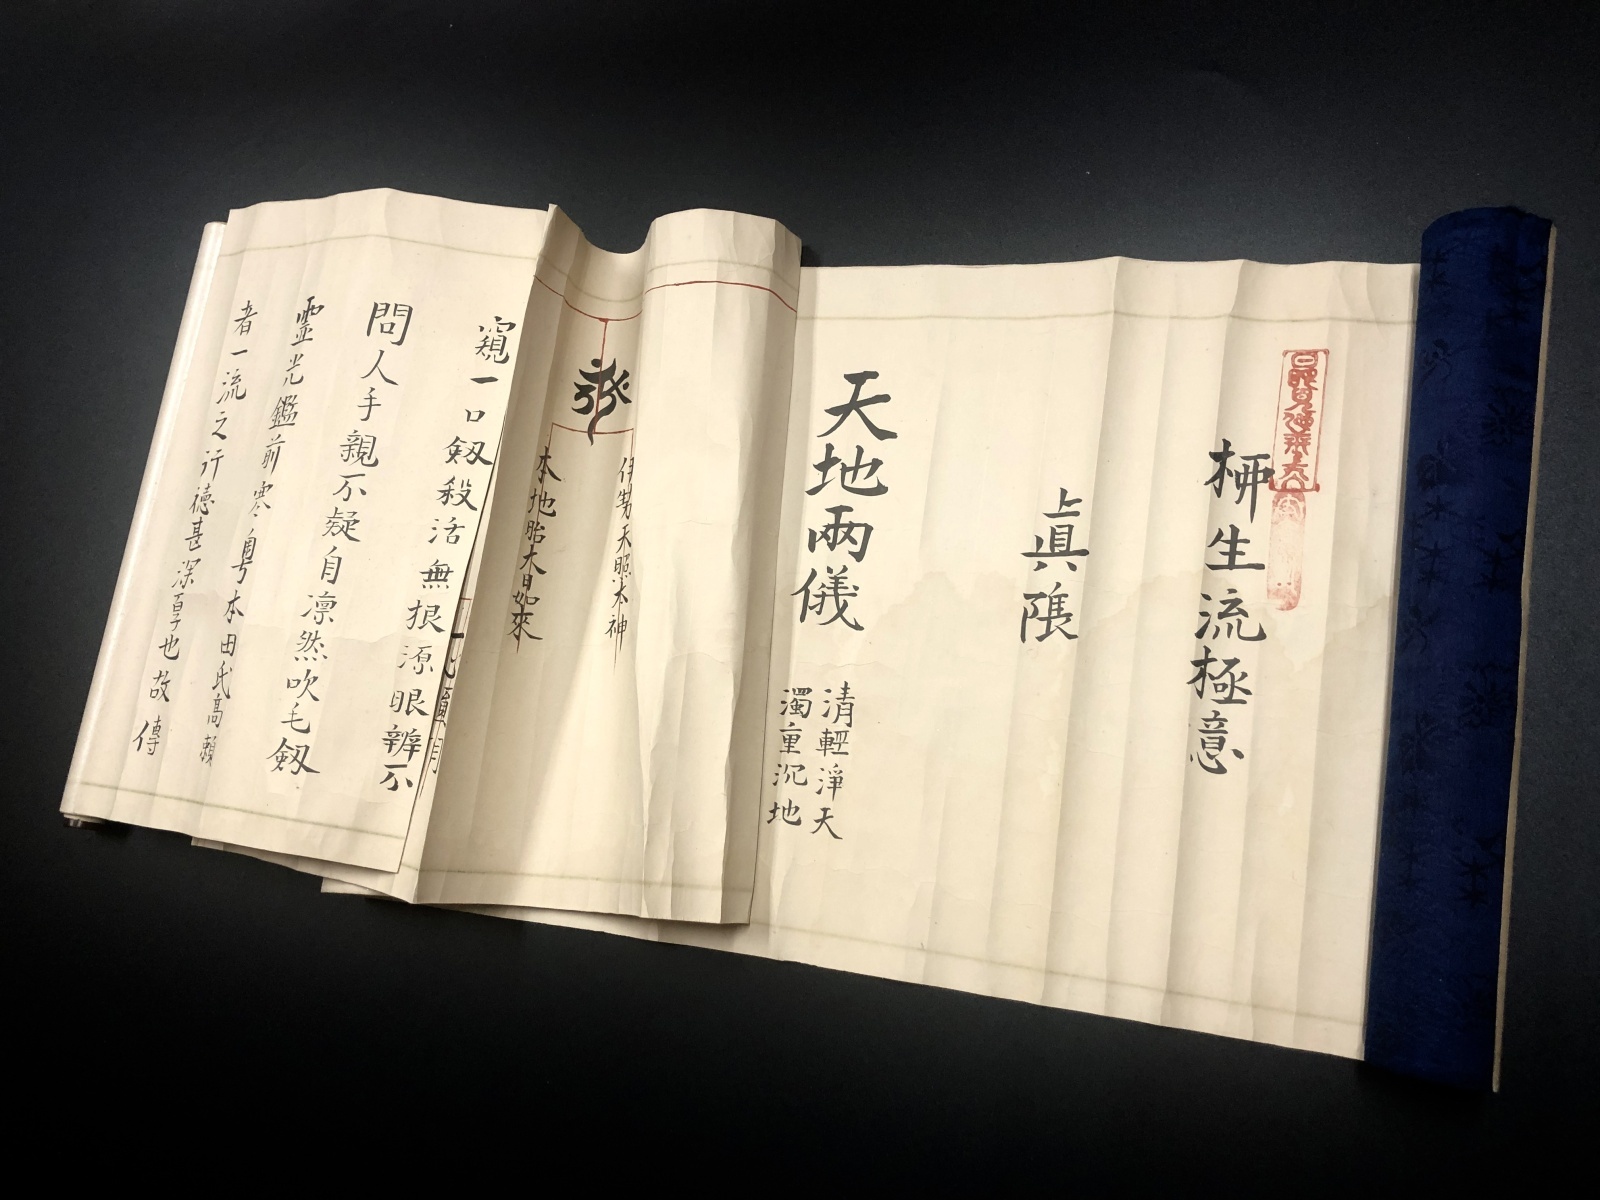 柳生流極意
上眞隂
天地兩儀
清輕淨天
濁重沉地
伊勢天照太神
本地胎大日如來
窺一口劔殺活無根源眼辨不
問人手親不疑自凛然吹毛劔
靈光鑑前寒粤本田氏高頼
者一流之行徳甚深厚也故傳